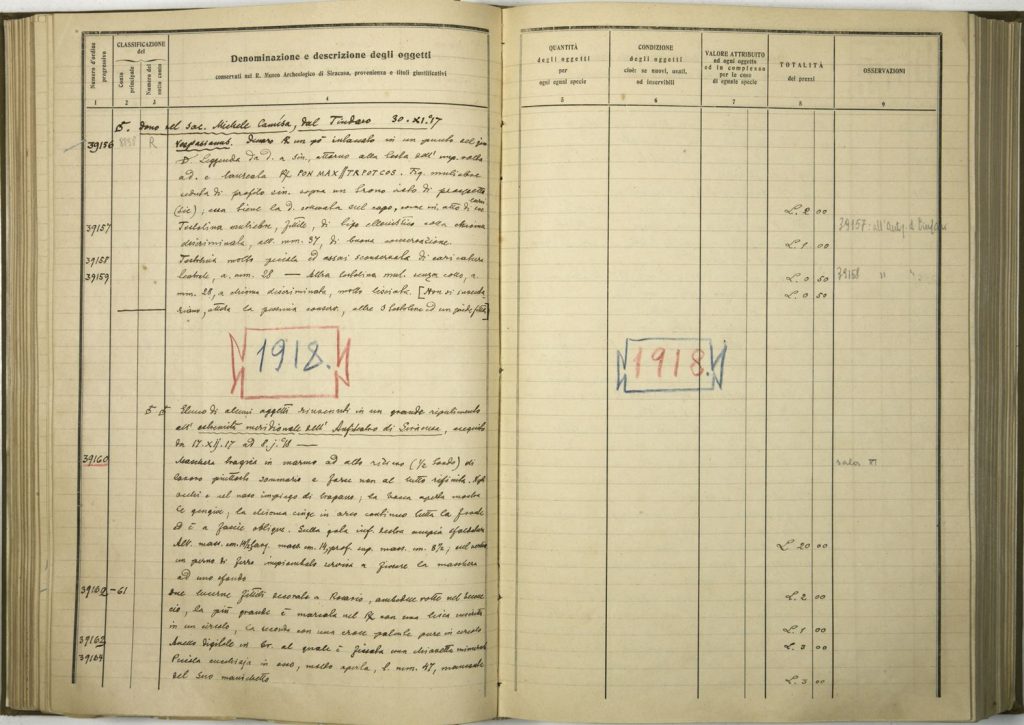 Numero d'ordine progressivo
CLASSIFICAZIONE del
Conto principale
Numero del sotto conto
Denominazione e descrizione degli oggetti
conservati nel R. Museo Archeologico di Siracusa, provenienza e titoli giustificativi
1 2 3 4
QUANTITÀ degli oggetti per ogni egual specie
CONDIZIONE degli oggetti cioè: se nuovi, usati, od inservibili
VALORE ATTRIBUITO ad ogni oggetto od in complesso per le cose di eguale specie
TOTALITÀ dei prezzi
OSSERVAZIONI
5 6 7 8 9
5. Dono del Sac. Michele Camísa, dal Tindaro 30.XI.º17
39156 R Vespassanus. Denaro R un pò intaccato in un punto del
D. Leggenda da d. a sin., attorno alla testa dell' imp. volta
a d. e laureata R/ PON MAX // TR POT COS. Fig. muliebre
seduta di profilo sin. sopra un trono visto di prospetto
(sic); essa tiene la d. sul capo, come in atto di
L. 2 00
39157 Testolina muliebre, fittile, di tipo ellenistico colla chioma
39157: all'Antiq. di
discriminata, alt. mm. 37, di buona conservazione.
L. 1 00
39158 Testolina molto piccola ed assai sconservata di caricatura
39159 teatrale, a. mm. 28 — Altra testolina mul. senza collo, a.
39158 " "
L. 0 50
mm. 28, a chioma discriminata, molto lisciata. [Non si inventa-
L. 0 50
riano, attesa la pessima conserv., altre 3 testoline ed un piede fittile]
1918.
1918.
5 5 Elenco di alcuni oggetti rinvenuti in un grande ripulimento
all' estremità meridionale dell' Anfiteatro di Siracusa, eseguito
da 17.XII.17 ad 8.j.º18 —
39160 Maschera tragica in marmo ad alto rilievo (½ tondo) di
lavoro piuttosto sommario e forse non al tutto rifinita.
occhi e nel naso impiego di trapano; la bocca aperta mostra
le gengive; la chioma cinge in arco continuo tutta la fronte
ed è a fascie oblique. Sulla gota inf. destra
Alt. mass. cm. larg. mass. cm. 14, prof. sup. mass. cm. 8½; nel
L. 20 00
un perno di ferro impiombato serviva a fissare la maschera
ad uno sfondo
39160-61 Due lucerne fittili decorate a Rosario, ambedue rotte nel becuc-
L. 2 00
cio, la più grande è marcata nel R/ con una
in un circolo, la seconda con una croce potente pure in circolo
L. 1 00
39162 Anello digitale in br. al quale è fissata una chiavetta minuscola
L. 3 00
39164 Piccola cucchiaja in osso, molto aperta, l. mm. 47, mancante
del suo manichetto
L. 3 00